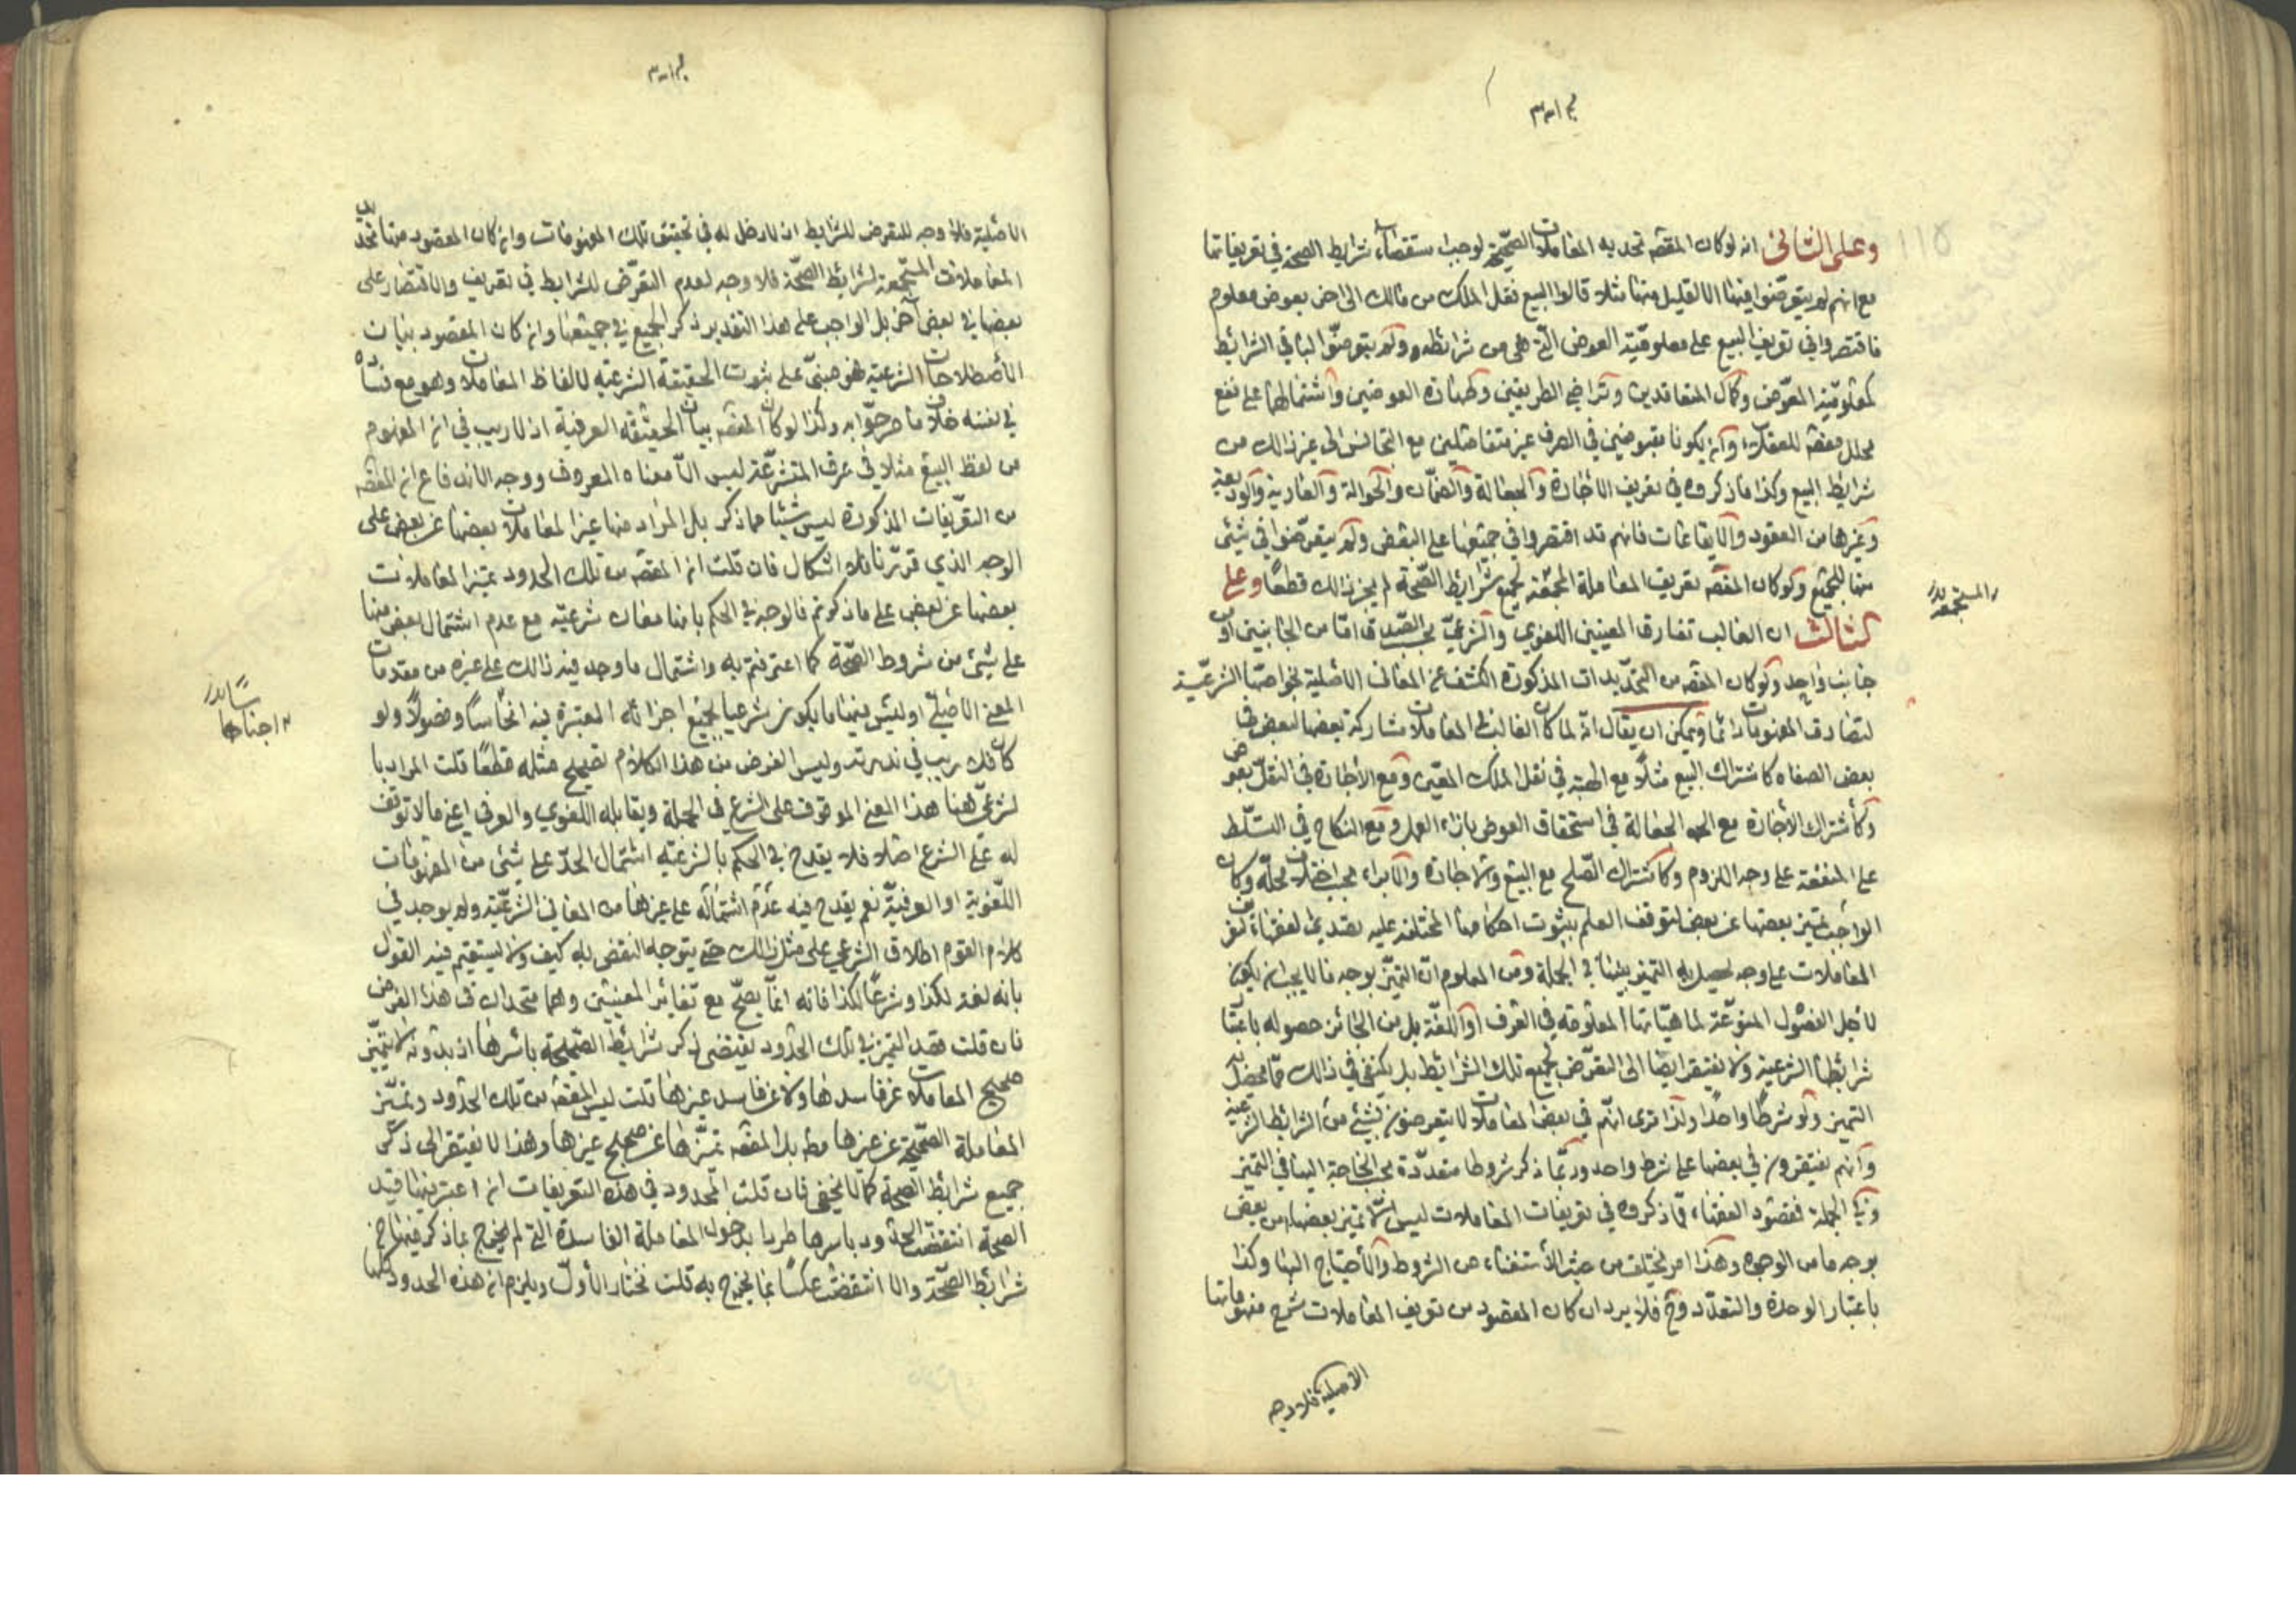 وعلى الثاني انه لو كان المقصد تحديد المعاملات الصحيحة لوجب استقصاء شرايط الصحة في تعريفاتها
مع انهم لم يتعرضوا فيها الا لقليل منها مثلا قالوا البيع نقل الملك من مالك الى اخر بعوض معلوم
فاقتصروا في تعريف البيع على معلوميّة العوض الّتي هي من شرائطه ولم يتعرضوا لباقي الشرائط
كمعلوميّة المعوّض وكمال المتعاقدين وتراضي الطريقين وطهارة العوضين واشتمالهما على نفع
محلل مقصد للعقلاء وان يكونا مقبوضين في الصرف غير متفاضلين مع التجانس الى غير ذالك من
شرايط البيع وكذا ما ذكروه في تعريف الاجارة والجعالة والضمان والحوالة والعارية والوديعة
وغيرها من العقود والايقاعات فانهم قد اقتصروا في جميعها على البعض ولم يتعرّضوا في شئ
منها للجميع ولو كان المقصد تعريف المعاملة المجتمعة لجميع شرايط الصّحة لم يجز ذالك قطعًا وعلى
الثالث ان الغالب تفارق المعنيين اللغوي والشرعيّ بحسب الصّدق امّا من الجانبين او من
جانب واحد ولو كان المقصد من التحديدات المذكورة الكشف عن المعاني الاصلية بخواصّها الشرعيّة
لتصادق المفهومات دائما ويمكن ان يقال انّه لما كان الغالب في المعاملات مشاركة بعضها لبعض في
بعض الصفاه كاشتراك البيع مثلًا مع الهبة في نقل الملك المعيّن ومع الاجارة في النقل بعوض
وكأشتراك الأجارة مع الجعالة في استحقاق العوض بازاء العمل ومع النكاح في التسلّط
على المنفعة على وجه اللزوم وكاشتراك الصّلح مع البيع والاجارة والابراء بحسب اختلاف محلّه وكان
الواجب تميز بعضها عن بعض لتوقف العلم بثبوت احكامها المختلفة عليه تصدي الفقهاء لتعريف
المعاملات على وجه يحصل به التميز بينها في الجملة ومن المعلوم انّ التميّز بوجه ما لا يجب ان يكون
لاجل الفصول المنوّعة لماهيّاتها المعلومة في العرف او اللغة بل من الجائز حصوله باعتبار
شرائطها الشرعية ولا يفتقر ايضا الى التعرّض لجميع تلك الشرائط بل يكتفي في ذالك بما يحصل به
التميز ولو شرطًا واحدًا ولذا ترى انّهم في بعض المعاملات لا يتعرضون لشيئ من الشرائط الشرعية
وانهم يفتقرون في بعضها على شرط واحد وربّما ذكر شروطا متعدّدة بحسب الحاجة اليها في التميز
وفي الجملة فمقصود الفقهاء ممّا ذكروه في تعريفات المعاملات ليس الا تميز بعضها من بعض
بوجه ما من الوجوه وهذا امر يختلف من حيث الأستغناء من الشروط والأحتياج اليها وكذا
باعتبار الوحدة والتعدّد وح فلا يرد ان كان المقصود من تعريف المعاملات شرح مفهوماتها
الاصلية فلا وجه
المستجمعه
الاصلية فلا وجه للتعرض للشرايط اذ لا دخل له في تحقيق تلك المفهومات وان كان المقصود منها تحديد
المعاملات المستجمعة لشرائط الصحّة فلا وجه لعدم التعرّض للشرايط في تعريف والاقتصار على
بعضها في بعض آخر بل الواجب على هذا التقدير ذكر الجميع في جميعها وان كان المقصود بيان
الأصطلاحات الشرعية فهو مبنيّ على ثبوت الحقيقة الشرعيه لالفاظ المعاملات وهو مع فساده
في نفسه خلاف ما صرحوا به وكذا لو كان المقصد بيان الحقيقة العرفية اذ لا ريب في ان المفهوم
من لفظ البيع مثلا في عرف المتشرعة ليس الّا معناه المعروف ووجه الاندفاع ان المقصد
من التعريفات المذكورة ليس شيئا مما ذكر بل المراد منها تميز المعاملات بعضها عن بعض على
الوجه الذي قرّرنا فلا اشكال فان قلت ان المقصد من تلك الحدود تميز المعاملات
بعضها عن بعض على ما ذكرتم فالوجه في الحكم بانها معان شرعيّة مع عدم اشتمال بعض منها
على شئ من شروط الصحّة كما اعترفتم به واشتمال ما وجد فيه ذالك على غيره من مقدمات
المعنى الأصلي اوليس بينها ما يكون شرعيا لجميع اجزائه المعتبرة فيه اجناسًا وفصولًا ولو
كان فلا ريب في ندرته وليس الغرض من هذا الكلام تصحيح مثله قطعًا قلت المراد با
لشرعيّ هنا هذا المعنى الموقوف على الشرع في الجملة ويقابله اللغوي والعرفي اعني ما لا توقف
له على الشرع اصلا فلا يقدح في الحكم بالشرعية اشتمال الحدّ على شئ من المفهومات
اللّغوية او العرفيّة نعم يقدح فيه عدم اشتماله على غيرها من المعاني الشرعيّة ولم يوجد في
كلام القوم اطلاق الشرعي على مثل ذالك حتى يتوجه النقض به كيف ولا يستقيم فيه القول
بانه لغة لكذا وشرعًا لكذا فانه انما يصحّ مع تغائر المعنيين وهما متحدان في هذا الفرض
فان قلت قصد التميز في تلك الحدود يقتضي ذكر شرائط الصّحة باسرها اذ بدونه لا يتميّز
صحيح المعاملات عن فاسدها ولا عن فاسد غيرها قلت ليس المقصد من تلك الحدود تميّز
المعاملة الصحّيحة عن غيرها مط بل المقصد تميّزها عن صحيح غيرها وهذا لا يفتقر الى ذكر
جميع شرائط الصحة كما لا يخفى فان قلت المحدود في هذه التعريفات ان اعتبر فيها قيد
الصحة انتقضت الحدود باسرها طردا بدخول المعاملة الفاسدة التي لم يخرج بما ذكر فيها من
شرائط الصحّة والا انتقضت عكسًا بما يخرج به قلت نختار الأول ويلزم ان هذه الحدود كلها